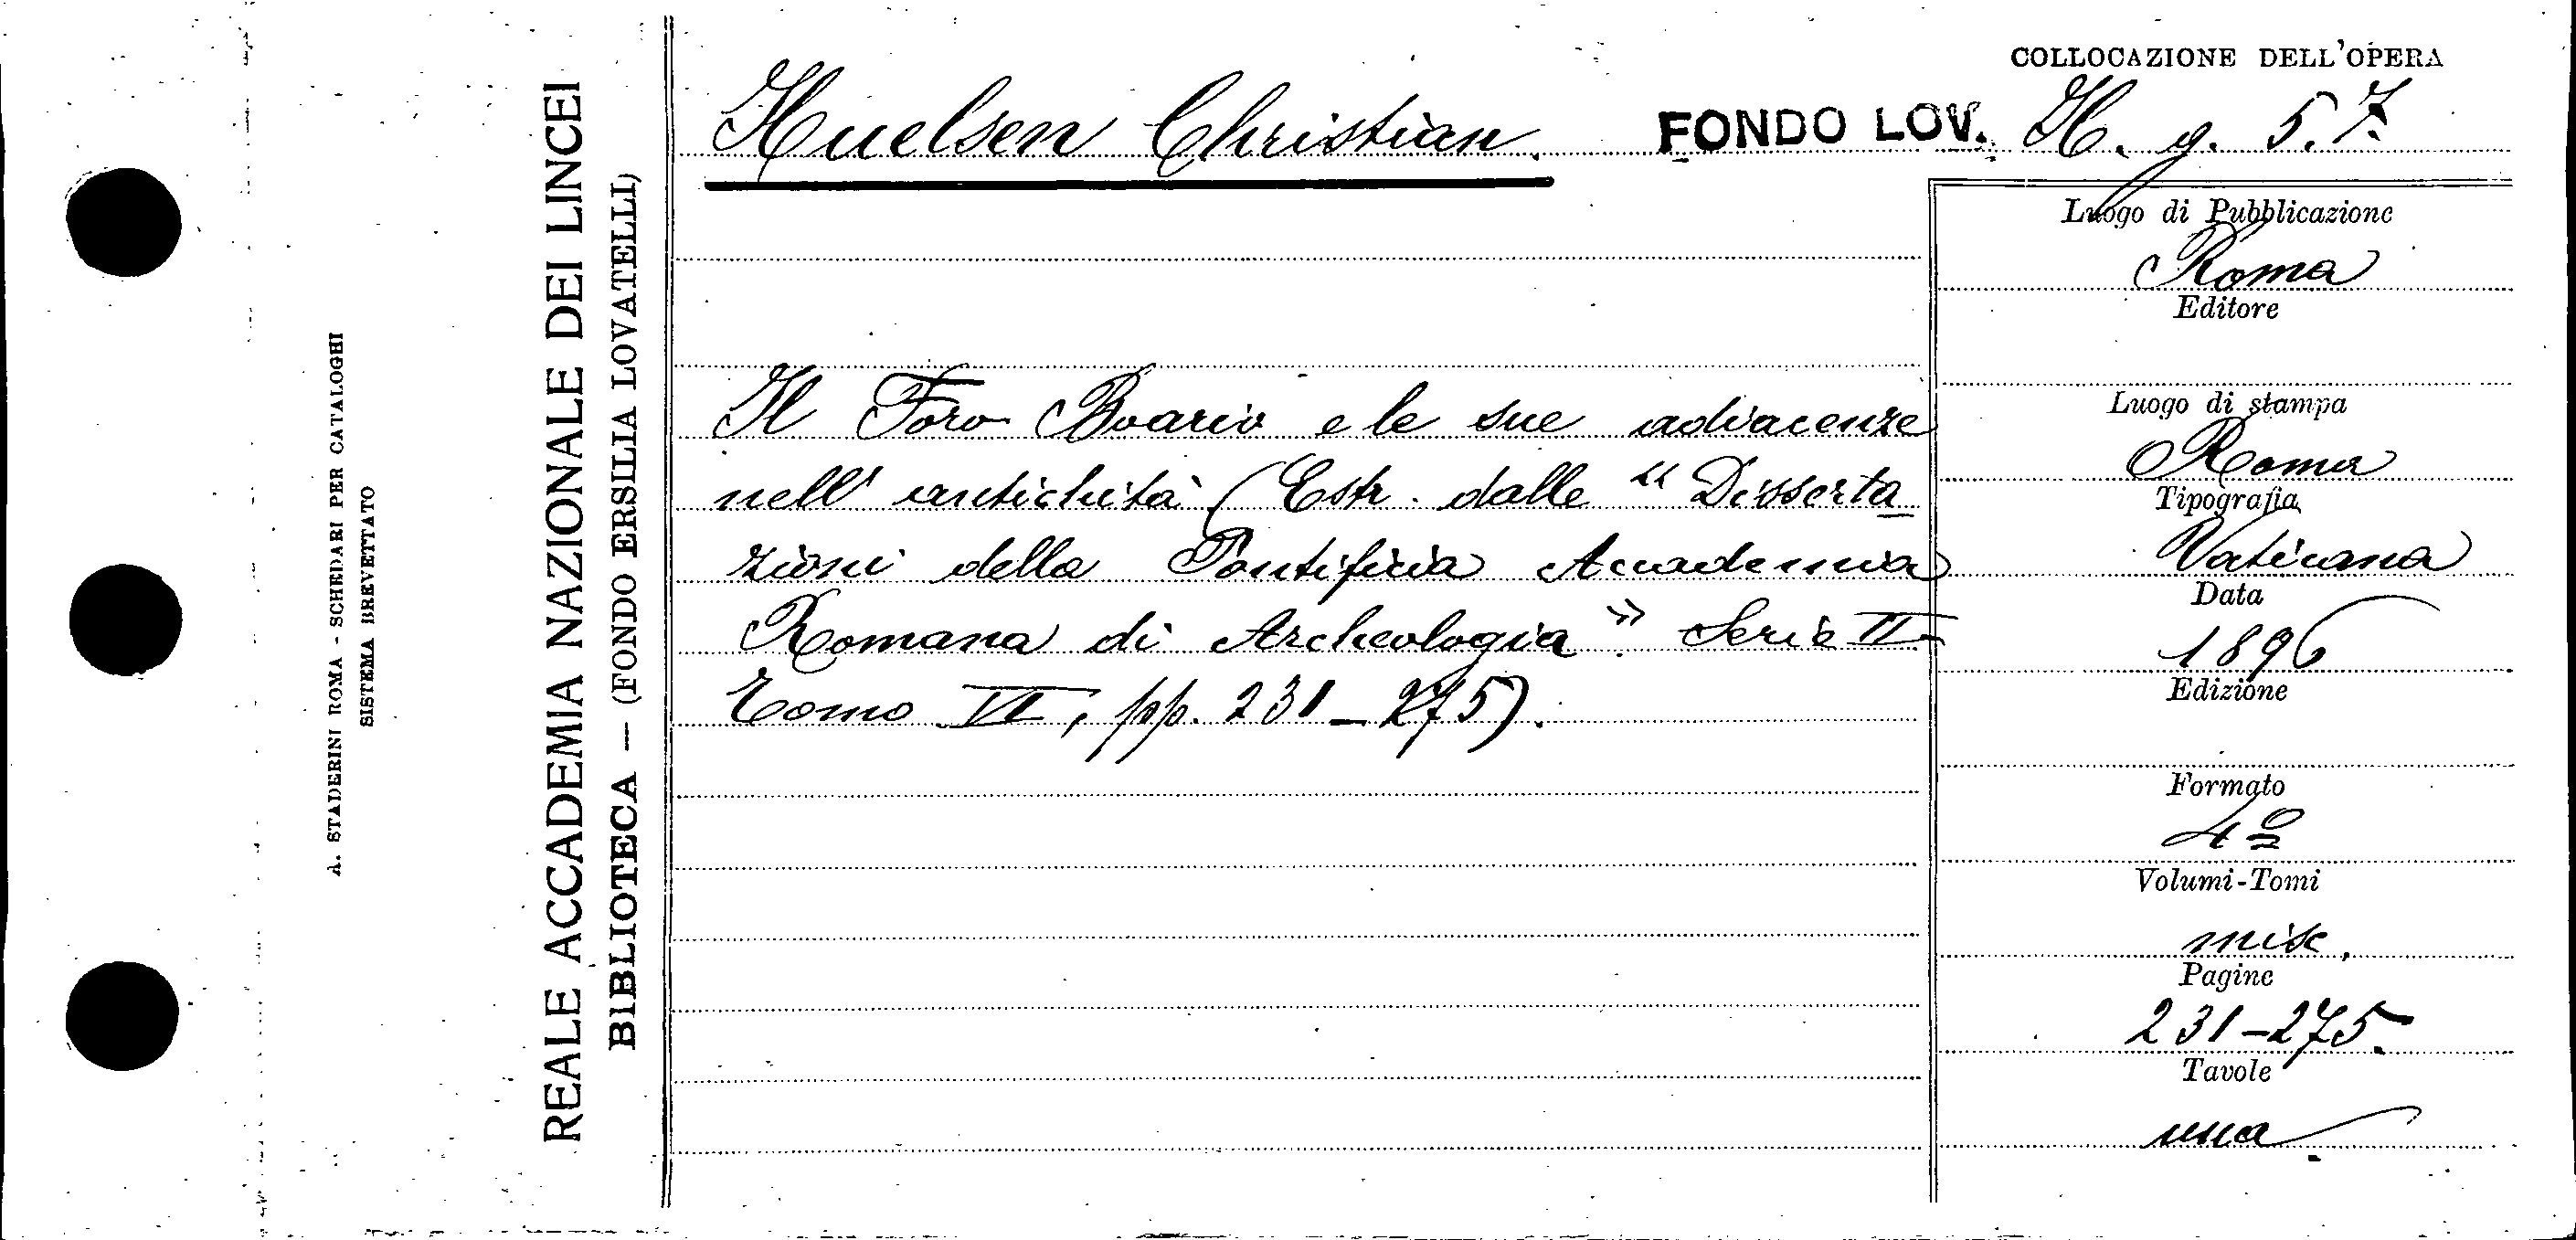 A. STADERINI ROMA - SCHEDARI PER CATALOGHI
SISTEMA BREVETTATO
REALE ACCADEMIA NAZIONALE DEI LINCEI
BIBLIOTECA — (FONDO ERSILIA LOVATELLI)
COLLOCAZIONE DELL'OPERA
Huelsen Christian. FONDO LOV. H. g. 5.7.
Il Foro Boario e le sue adiacenze
nell'antichità (Estr. dalle "Disserta
zioni della Pontificia Accademia
Romana di Archeologia". Serie II
Tomo VI, pp. 231-275).
Luogo di Pubblicazione
Roma
Editore
Luogo di stampa
Roma
Tipografia
Vaticana
Data
1896
Edizione
Formato
4º
Volumi-Tomi
misc.
Pagine
231-275.
Tavole
una